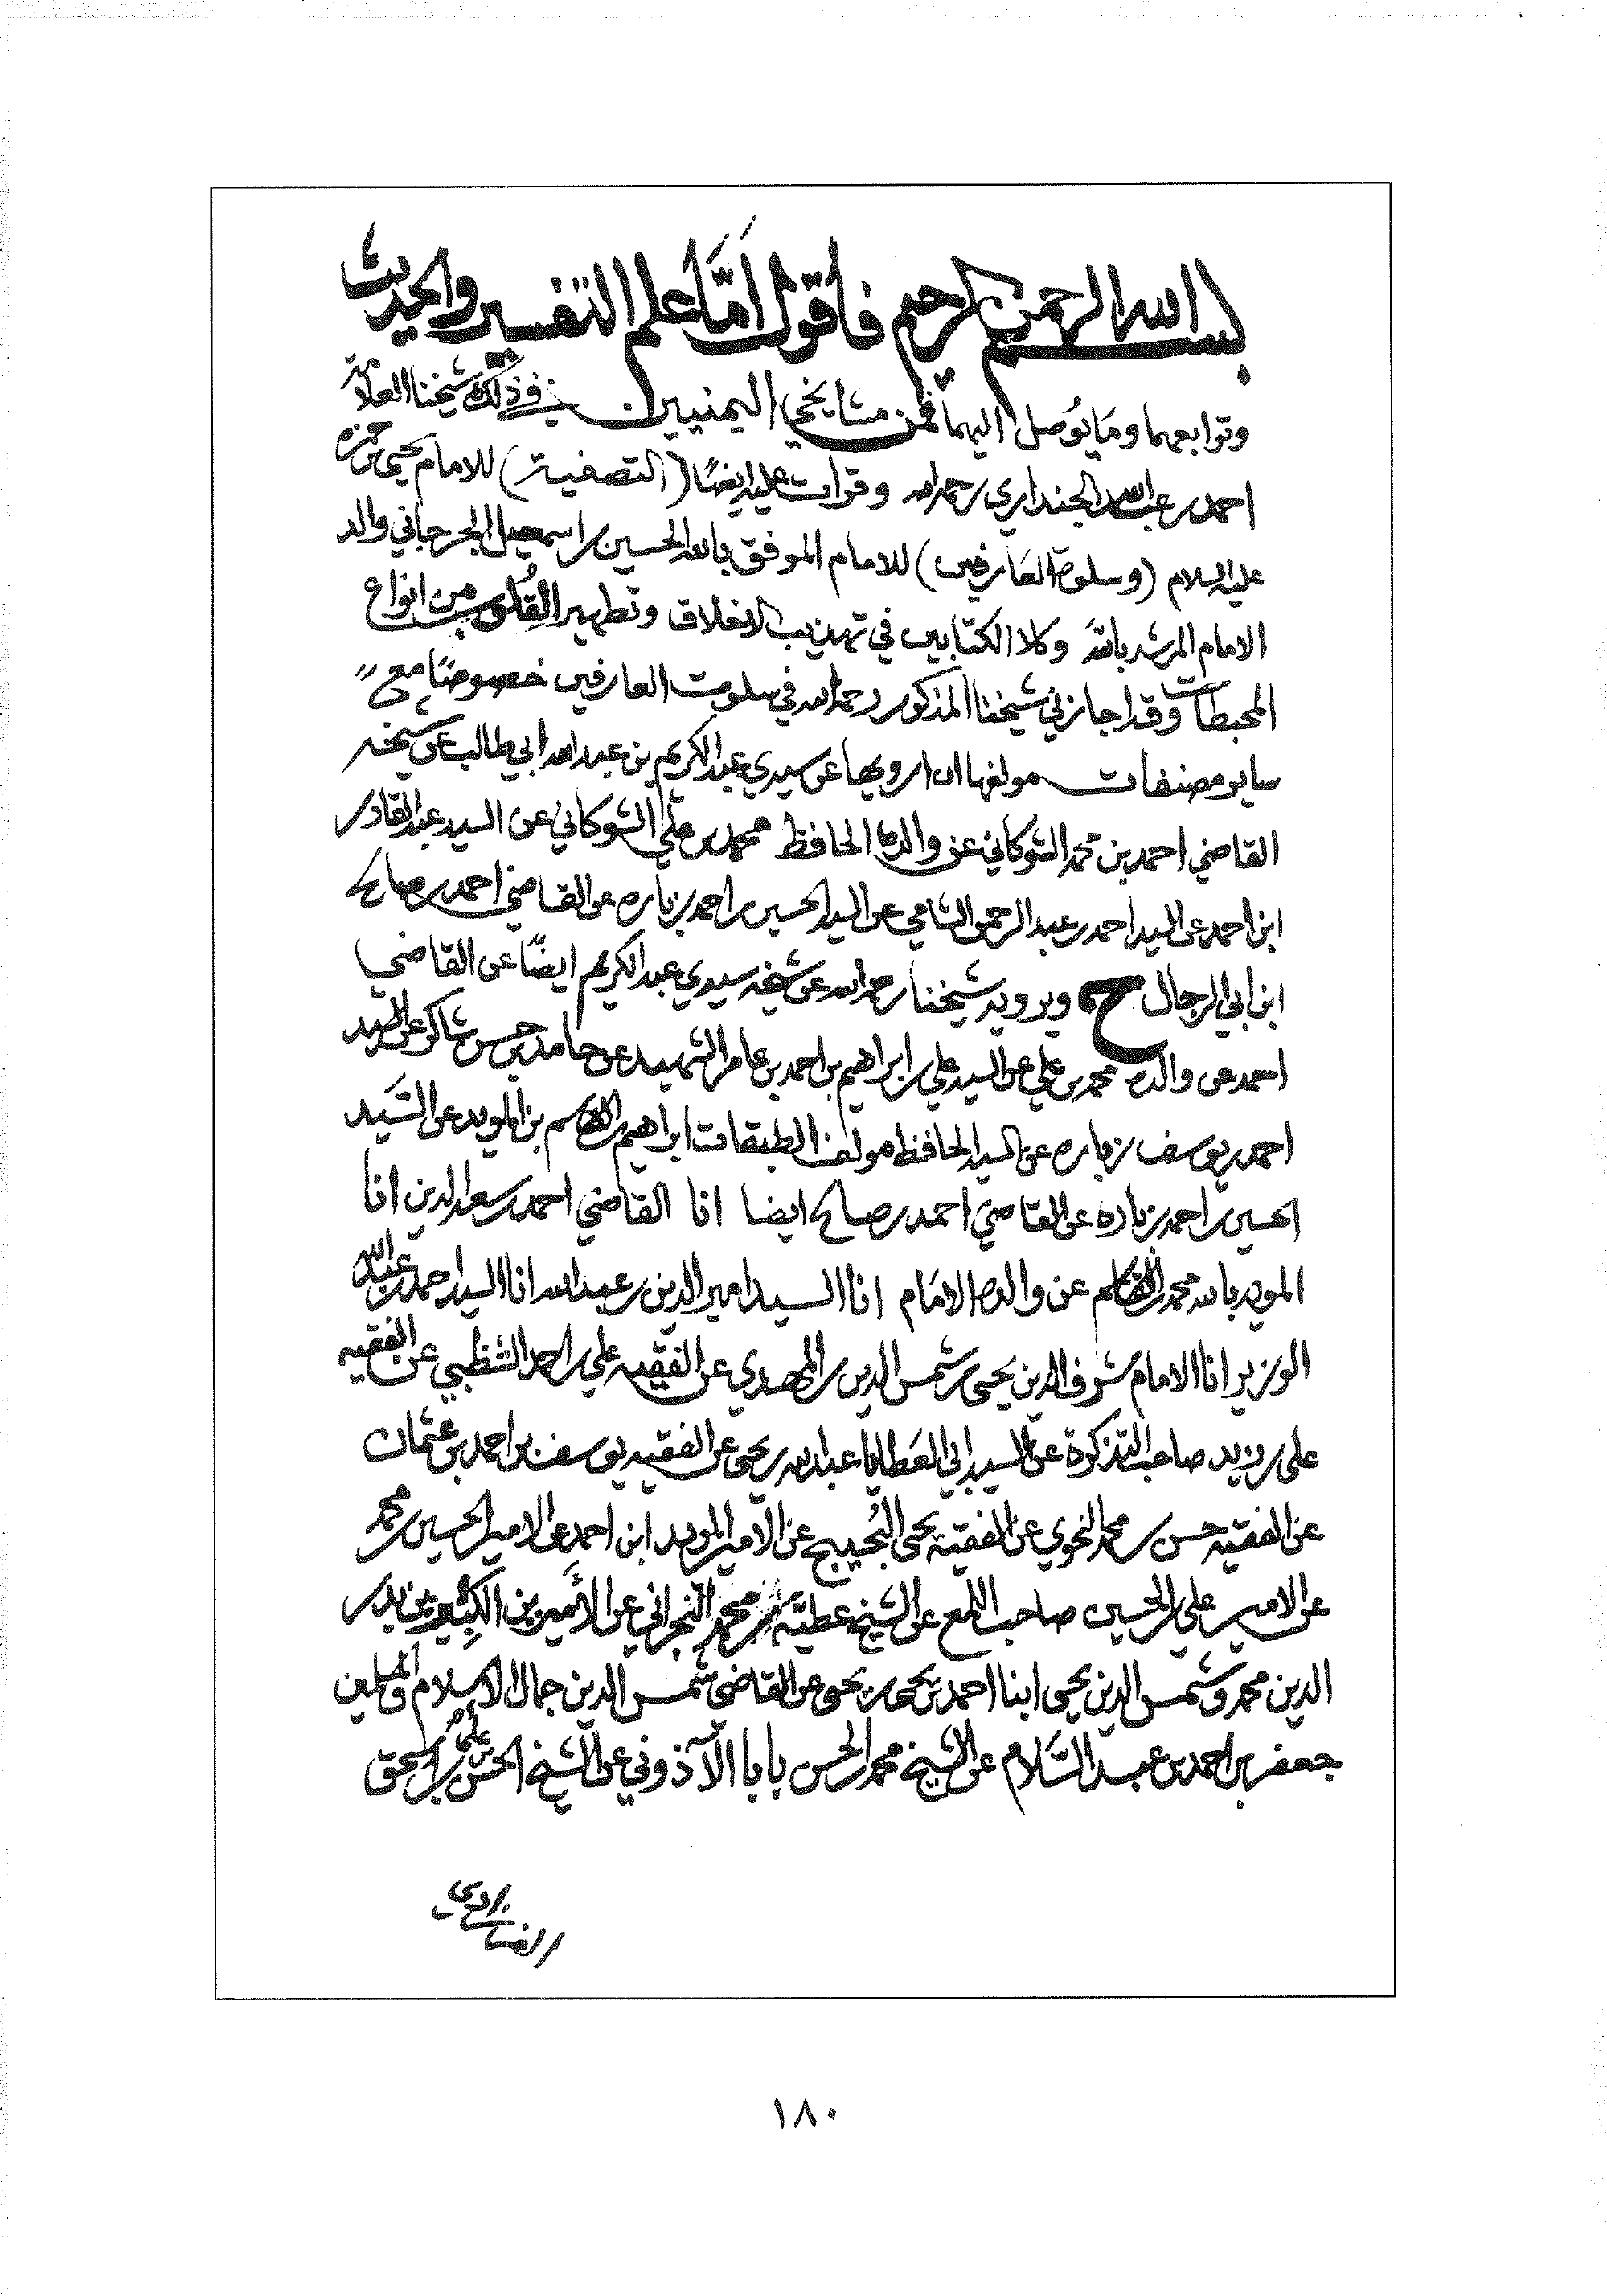 بسم الله الرحمن الرحيم فأقول أمّا علم التفسير والحديث
وتوابعهما ومَا يُوصل اليهما فمن مشايخي اليمنيين في ذلك شيخنا العلامه
احمد بن عبدالله الجنداري رحمه الله وقرات عليه ايضًا (التصفية) للامام يحيى بن حمزه
عليه السلام (وسلوة العَارفين) للامام الموفق بالله الحسين بن اسمعيل الجرجاني والد
الامام المرشد بالله وكلا الكتابين في تهذيب الاخلاق وتطهير القُلوب من انواع
المحبطات وقد اجازني شيخنا المذكور رحمه الله في سلوت العارفين خصوصًا مع
ساير مصنفات مولفها ان ارويها عن سيدي عبد الكريم بن عبد الله ابي طالب عن شيخه
القاضي احمد بن محمد الشوكاني عن والده الحافظ محمد بن علي الشوكاني عن السيد عبد القادر
ابن احمد عن السيد احمد بن عبد الرحمن الشامي عن السيد الحسين بن احمد زباره عن القاضي احمد بن صالح
ابن ابي الرجال ح ويرويه شيخنا رحمه الله عن شيخه سيدي عبد الكريم ايضًا عن القاضي
احمد عن والده محمد بن علي عن السيد علي بن ابراهيم بن احمد بن عامر الشهيد عن حامد بن حسن شاكر عن السيد
احمد بن يوسف زباره عن السيد الحافظ مولف الطبقات ابراهيم بن القاسم بن المويد عن السَّيد
الحسين بن احمد زباره عن القاضي احمد بن صالح ايضا انا القاضي احمد بن سعد الدين انا
المويد بالله محمد بن القاسم عن والده الامَام انا السيد امير الدين بن عبد الله انا السيد احمد بن عبد الله
الوزير انا الامام شرف الدين يحيى بن شمس الدين بن المهدي عن الفقيه علي بن احمد الشظبي عن الفقيه
على بن زيد صاحب التذكرة عن السيد ابي العَطايا عبد الله بن يحيى عن الفقيه يوسف بن احمد بن عثمان
عن الفقيه حسن بن محمد النحوي عن الفقيه يحيى البُحيبح عن الامير المويد ابن احمد عن الامير الحسين بن محمد
عن الامير علي بن الحسين صاحب اللمع عن الشيخ عطيّه بن محمد النجراني عن الأميرين الكبيرين بدر
الدين محمد وشمس الدين يحيى ابنا احمد بن يحيى بن يحيى عن القاضي شمس الدين جمال الاسلام والمسلمين
جعفر بن احمد بن عبد السَّلام عن الشيخ محمد بن الحسن بابا الآذوني عن الشيخ الحسن بن علي بن اسحق
١٨٠